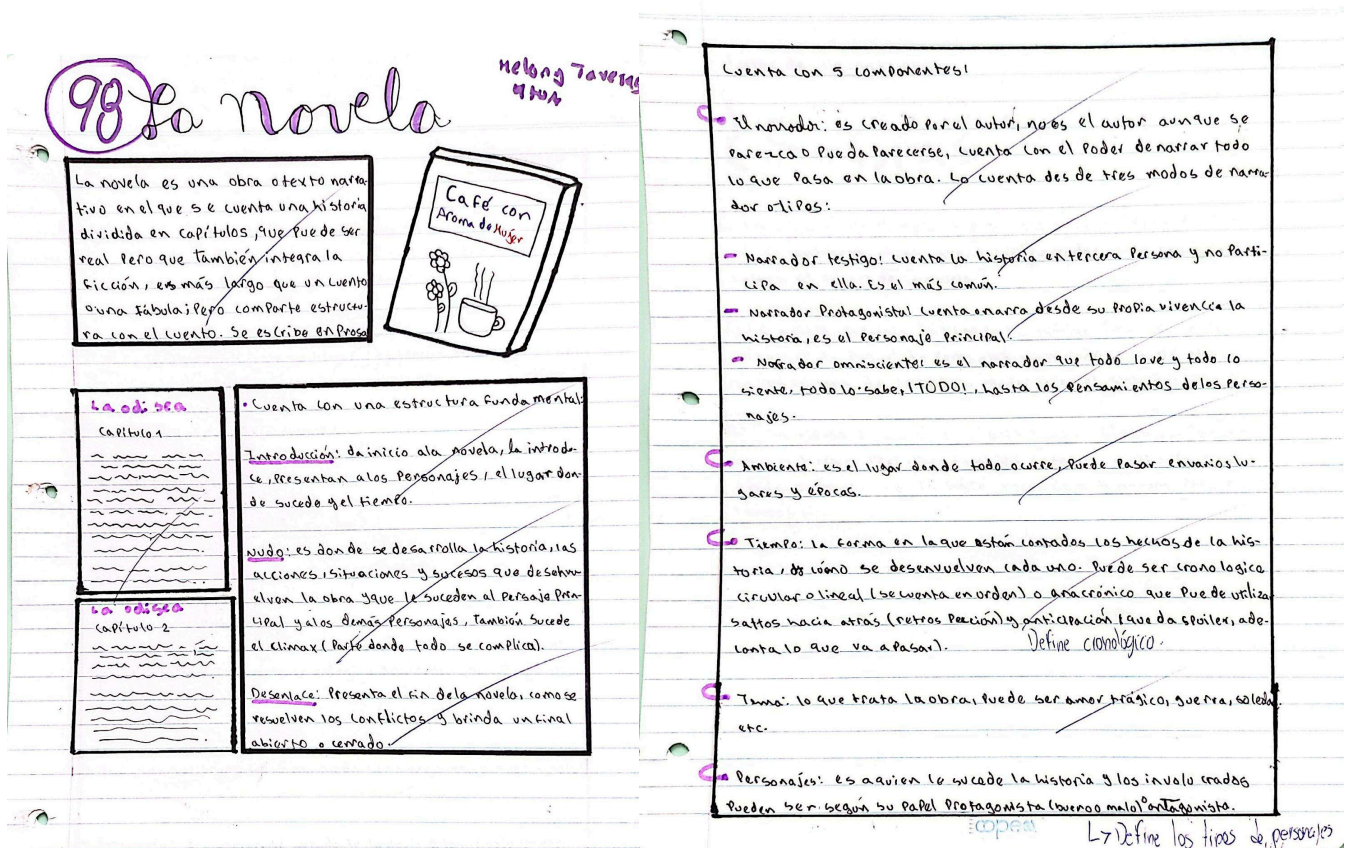 98 La novela
La novela es una obra o texto narra-
tivo en el que se cuenta una historia
dividida en capítulos, que puede ser
real pero que también integra la
ficción, es más largo que un cuento
o una fábula; pero comparte estructu-
ra con el cuento. Se escribe en prosa
Café con
Aroma de Mujer
La odisea
Capítulo 1
La odisea
Capítulo 2
• Cuenta con una estructura fundamental:
Introducción: da inicio a la novela, la introdu-
ce, presentan a los personajes, el lugar don-
de sucede y el tiempo.
Nudo: es donde se desarrolla la historia, las
acciones, situaciones y sucesos que desenvu-
elven la obra y que le suceden al persaje prin-
cipal y a los demás personajes, también sucede
el climax (parte donde todo se complica).
Desenlace: Presenta el fin de la novela, como se
resuelven los conflictos y brinda un final
abierto o cerrado.
Cuenta con 5 componentes:
El narrador: es creado por el autor, no es el autor aunque se
parezca o pueda parecerse, cuenta con el poder de narrar todo
lo que pasa en la obra. Lo cuenta desde tres modos de narra-
dor o tipos:
- Narrador testigo: cuenta la historia en tercera persona y no parti-
cipa en ella. Es el más común.
- Narrador Protagonista: cuenta o narra desde su propia vivencia la
historia, es el personaje principal.
- Narrador omnisciente: es el narrador que todo lo ve y todo lo
siente, todo lo sabe, ¡TODO!, hasta los pensamientos de los perso-
najes.
Ambiente: es el lugar donde todo ocurre, puede pasar en varios lu-
gares y épocas.
Tiempo: la forma en la que están contados los hechos de la his-
toria, cómo se desenvuelven cada uno. Puede ser cronologico
circular o lineal (se cuenta en orden) o anacrónico que puede utiliza
saltos hacia atrás (retrospección) y anticipación (que da spoiler, ade-
lanta lo que va a pasar).
Define cronológico.
Tema: lo que trata la obra, puede ser amor trágico, guerra, soledad
etc.
Personajes: es a quien le sucede la historia y los involucrados
Pueden ser según su papel Protagonista (bueno o malo) o antagonista.
↳ Define los tipos de personajes